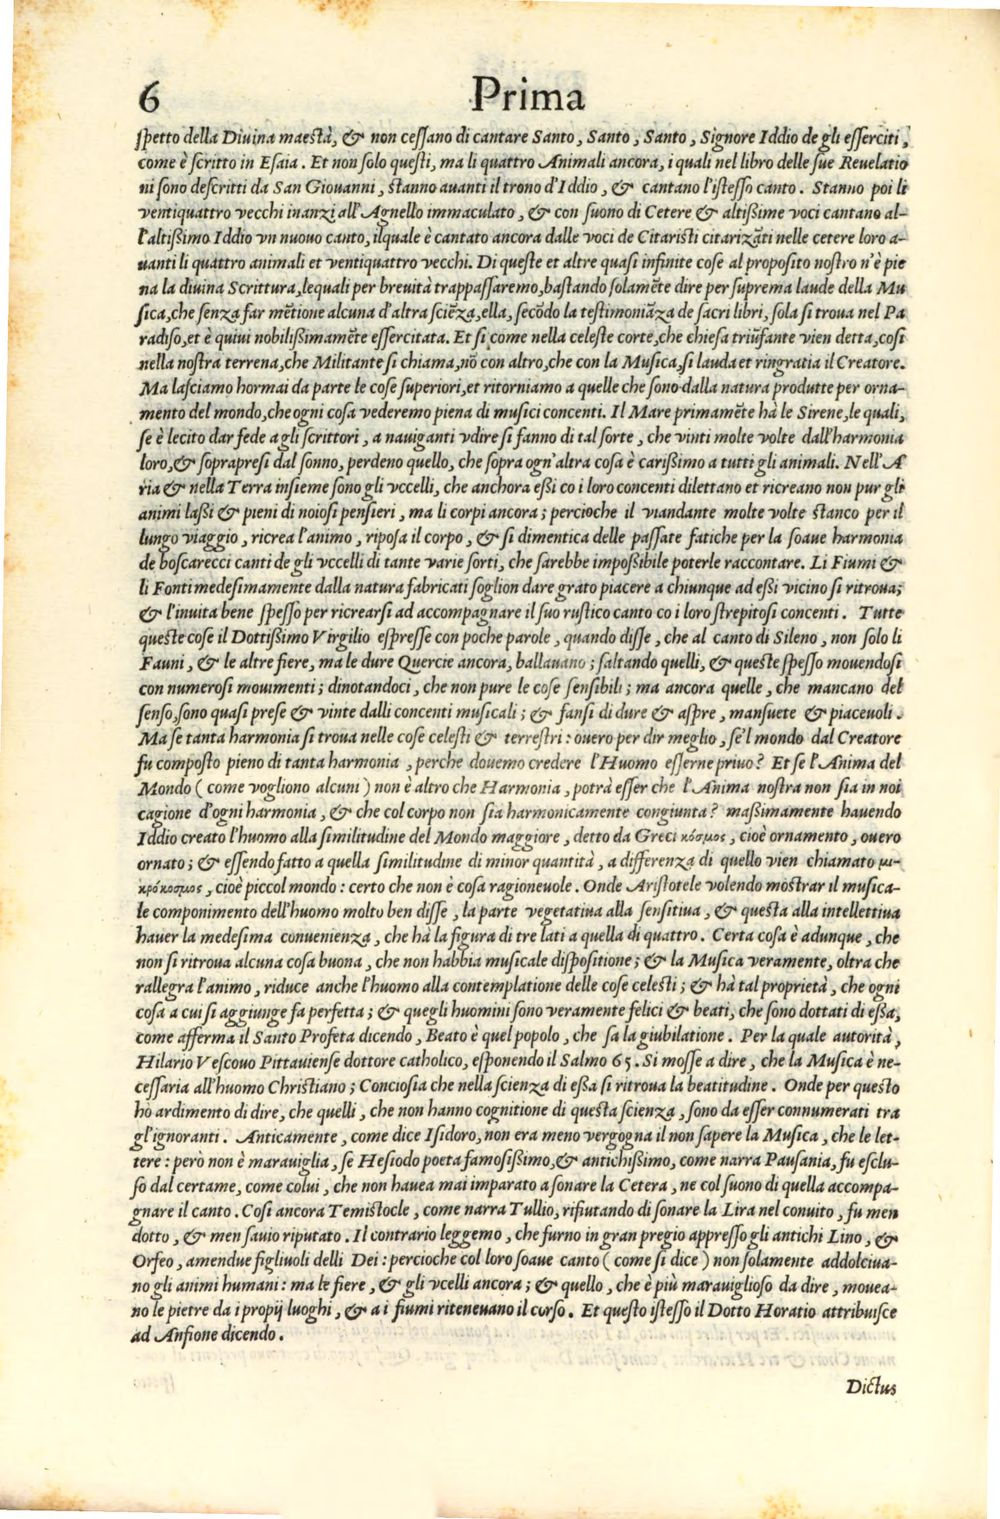 6 Prima
ſpetto della Diuina maeſtà, & non ceſſano di cantare Santo, Santo, Santo, Signore Iddio de gli eſſerciti,
come è ſcritto in Eſaia. Et non ſolo queſti, ma li quattro Animali ancora, i quali nel libro delle ſue Reuelatio
ni ſono deſcritti da San Giouanni, ſtanno auanti il trono d'Iddio, & cantano l'iſteſſo canto. Stanno poi li
ventiquattro vecchi inanzi all'Agnello immaculato, & con ſuono di Cetere & altißime voci cantano al-
l'altißimo Iddio vn nuouo canto, ilquale è cantato ancora dalle voci de Citariſti citarizāti nelle cetere loro a-
uanti li quattro animali et ventiquattro vecchi. Di queſte et altre quaſi infinite coſe al propoſito noſtro n'è pie
na la diuina Scrittura, lequali per breuità trappaſſaremo, baſtando ſolamēte dire per ſuprema laude della Mu
ſica, che ſenza far mētione alcuna d'altra ſciēza, ella, ſecōdo la teſtimoniāza de ſacri libri, ſola ſi troua nel Pa
radiſo, et è quiui nobilißimamēte eſſercitata. Et ſi come nella celeſte corte, che chieſa triūfante vien detta, coſi
nella noſtra terrena, che Militante ſi chiama, nō con altro, che con la Muſica, ſi lauda et ringratia il Creatore.
Ma laſciamo hormai da parte le coſe ſuperiori, et ritorniamo a quelle che ſono dalla natura produtte per orna-
mento del mondo, che ogni coſa vederemo piena di muſici concenti. Il Mare primamēte hà le Sirene, le quali,
ſe è lecito dar fede a gli ſcrittori, a nauiganti vdire ſi fanno di tal ſorte, che vinti molte volte dall'harmonia
loro, & ſopra preſi dal ſonno, perdeno quello, che ſopra ogn'altra coſa è carißimo a tutti gli animali. Nell'A
ria & nella Terra inſieme ſono gli vccelli, che anchora eßi co i loro concenti dilettano et ricreano non pur gli
animi laßi & pieni di noioſi penſieri, ma li corpi ancora; percioche il viandante molte volte ſtanco per il
lungo viaggio, ricrea l'animo, ripoſa il corpo, & ſi dimentica delle paſſate fatiche per la ſoaue harmonia
de boſcarecci canti de gli vccelli di tante varie ſorti, che ſarebbe impoßibile poterle raccontare. Li Fiumi &
li Fonti medeſimamente dalla natura fabricati ſoglion dare grato piacere a chiunque ad eßi vicino ſi ritroua;
& l'inuita bene ſpeſſo per ricrearſi ad accompagnare il ſuo ruſtico canto co i loro ſtrepitoſi concenti. Tutte
queſte coſe il Dottißimo Virgilio eſpreſſe con poche parole, quando diſſe, che al canto di Sileno, non ſolo li
Fauni, & le altre fiere, ma le dure Quercie ancora, ballauano; ſaltando quelli, & queſte ſpeſſo mouendoſi
con numeroſi mouimenti; dinotandoci, che non pure le coſe ſenſibili; ma ancora quelle, che mancano del
ſenſo, ſono quaſi preſe & vinte dalli concenti muſicali; & fanſi di dure & aſpre, manſuete & piaceuoli.
Ma ſe tanta harmonia ſi troua nelle coſe celeſti & terreſtri: ouero per dir meglio, ſe'l mondo dal Creatore
fu compoſto pieno di tanta harmonia, perche douemo credere l'Huomo eſſerne priuo? Et ſe l'Anima del
Mondo (come vogliono alcuni) non è altro che Harmonia, potrà eſſer che l'Anima noſtra non ſia in noi
cagione d'ogni harmonia, & che col corpo non ſia harmonicamente congiunta? maßimamente hauendo
Iddio creato l'huomo alla ſimilitudine del Mondo maggiore, detto da Greci κόσμος, cioè ornamento, ouero
ornato; & eſſendo fatto a quella ſimilitudine di minor quantità, a differenza di quello vien chiamato μι-
κρόκοσμος, cioè piccol mondo: certo che non è coſa ragioneuole. Onde Ariſtotele volendo moſtrar il muſica-
le componimento dell'huomo molto ben diſſe, la parte vegetatiua alla ſenſitiua, & queſta alla intellettiua
hauer la medeſima conuenienza, che hà la figura di tre lati a quella di quattro. Certa coſa è adunque, che
non ſi ritroua alcuna coſa buona, che non habbia muſicale diſpoſitione; & la Muſica veramente, oltra che
rallegra l'animo, riduce anche l'huomo alla contemplatione delle coſe celeſti; & hà tal proprietà, che ogni
coſa a cui ſi aggiunge fa perfetta; & quegli huomini ſono veramente felici & beati, che ſono dottati di eßa,
come afferma il Santo Profeta dicendo, Beato è quel popolo, che ſa la giubilatione. Per la quale autorità,
Hilario Veſcouo Pittauienſe dottore catholico, eſponendo il Salmo 65. Si moſſe a dire, che la Muſica è ne-
ceſſaria all'huomo Chriſtiano; Conciosia che nella ſcienza di eßa ſi ritroua la beatitudine. Onde per queſto
hò ardimento di dire, che quelli, che non hanno cognitione di queſta ſcienza, ſono da eſſer connumerati tra
gl'ignoranti. Anticamente, come dice Iſidoro, non era meno vergogna il non ſapere la Muſica, che le let-
tere: però non è marauiglia, ſe Heſiodo poeta famoſißimo, & antichißimo, come narra Pauſania, fu eſclu-
ſo dal certame, come colui, che non hauea mai imparato a ſonare la Cetera, ne col ſuono di quella accompa-
gnare il canto. Coſi ancora Temiſtocle, come narra Tullio, rifiutando di ſonare la Lira nel conuito, fu men
dotto, & men ſauio riputato. Il contrario leggemo, che furno in gran pregio appreſſo gli antichi Lino, &
Orfeo, amendue figliuoli delli Dei: percioche col loro ſoaue canto (come ſi dice) non ſolamente addolciua-
no gli animi humani: ma le fiere, & gli vcelli ancora; & quello, che è più marauiglioſo da dire, mouea-
no le pietre da i propij luoghi, & a i fiumi riteneuano il corſo. Et queſto iſteſſo il Dotto Horatio attribuiſce
ad Anfione dicendo.
Dictus